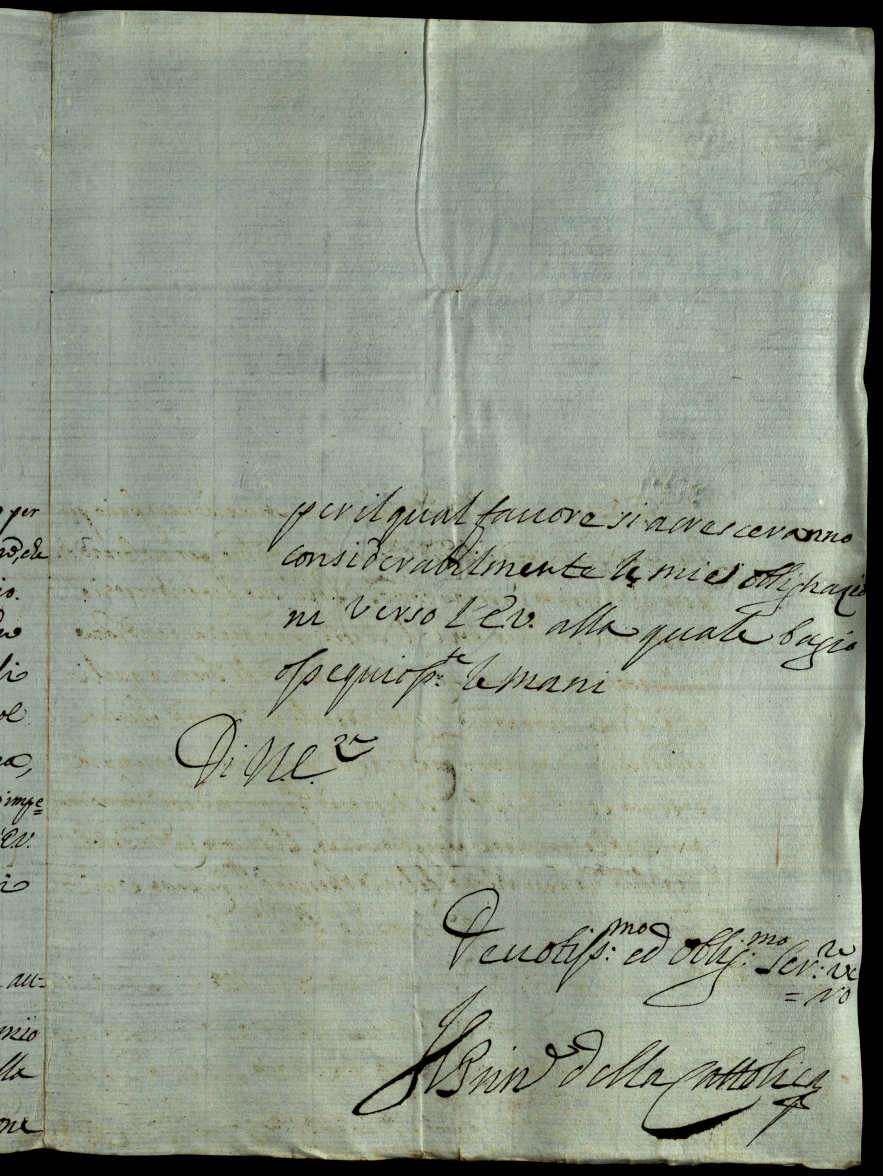 per
io.
li
a,
impe=
EV.
au=
lla
one
per il qual favore si acresceranno
considerabilmente le mie obligazio
ni verso l'EV. alla quale bagio
ossequiosste: le mani
Di V.E.za
Devotiss:mo ed oblig:mo Ser:re ve
=ro
Il Prin.e della Cattolica